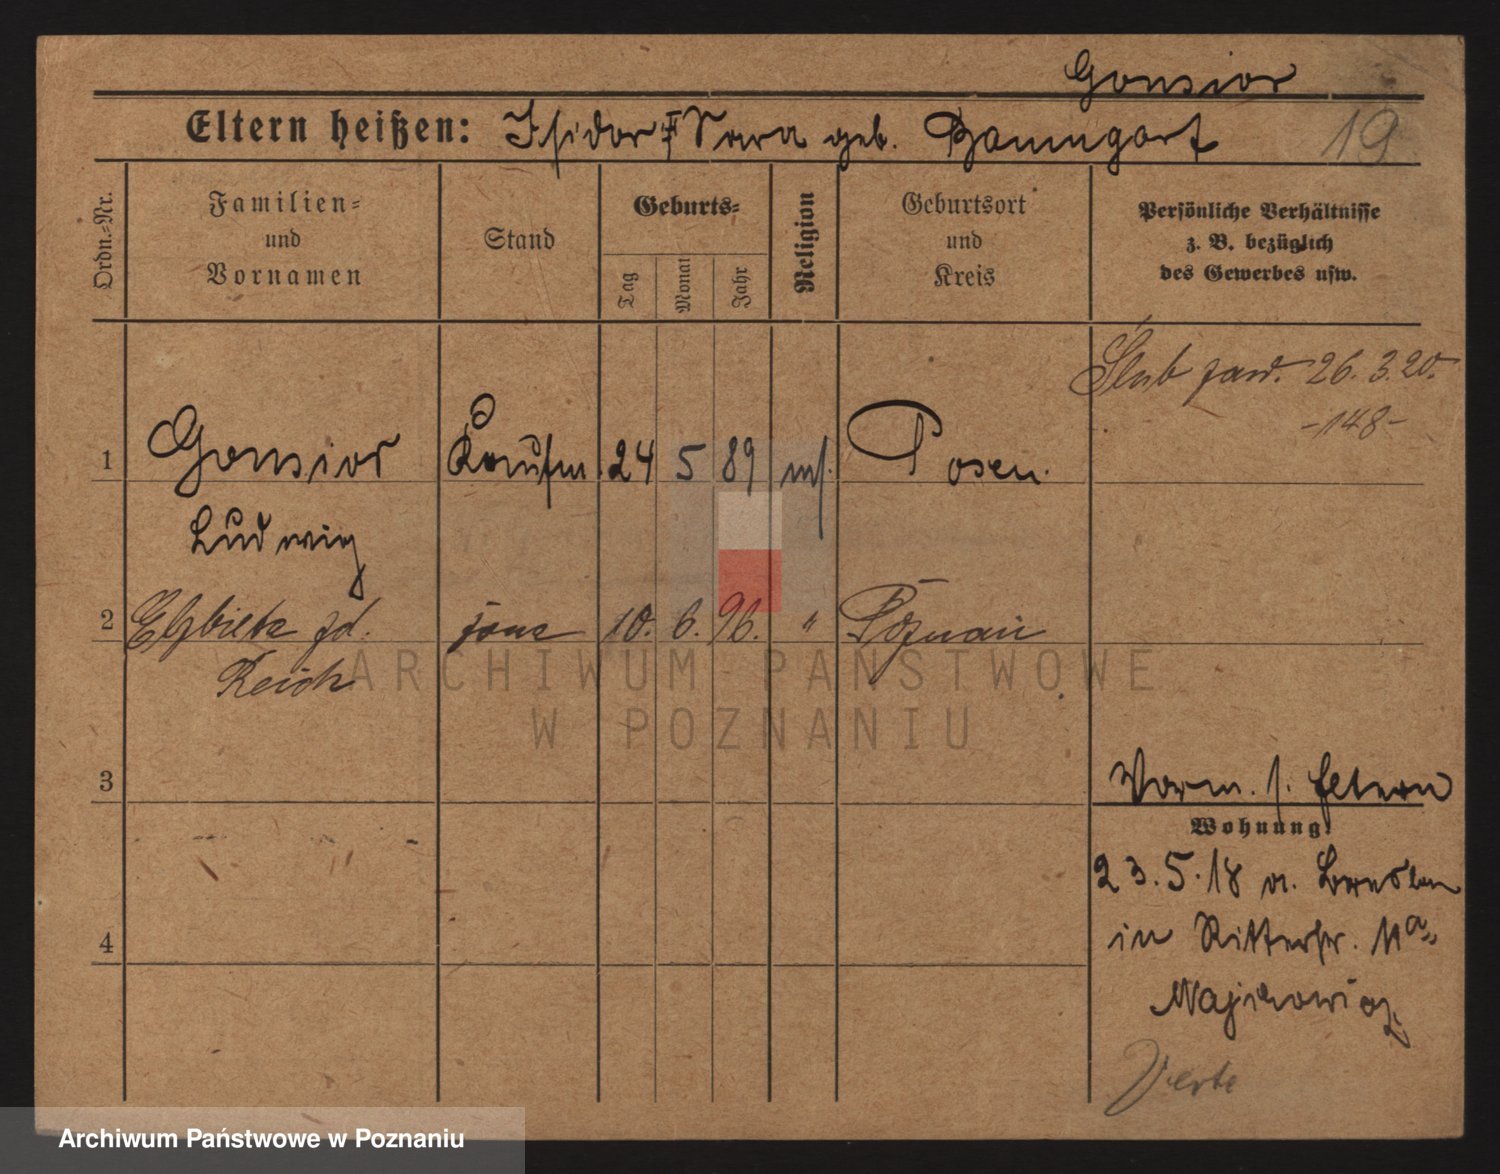 Gonsior
Eltern heißen: Isidor & Sara geb. Baumgart 19
Ordn.-Nr.
Familien-
und
Vornamen
Stand
Geburts-
Tag
Monat
Jahr
Religion
Geburtsort
und
Kreis
Persönliche Verhältnisse
z. B. bezüglich
des Gewerbes usw.
Ślub zaw. 26.3.20.
-148-
1 Gonsior Kaufm. 24 5 89 ms. Posen.
Ludwig
2 Elżbieta zd. żona 10. 6. 96. " Poznań
Reich
3
Vorm. s. Eltern
Wohnung:
23.5.18 v. Breslau
4
in Ritterstr. 11a
Majkowicz
Verte
ARCHIWUM PAŃSTWOWE
W POZNANIU
Archiwum Państwowe w Poznaniu